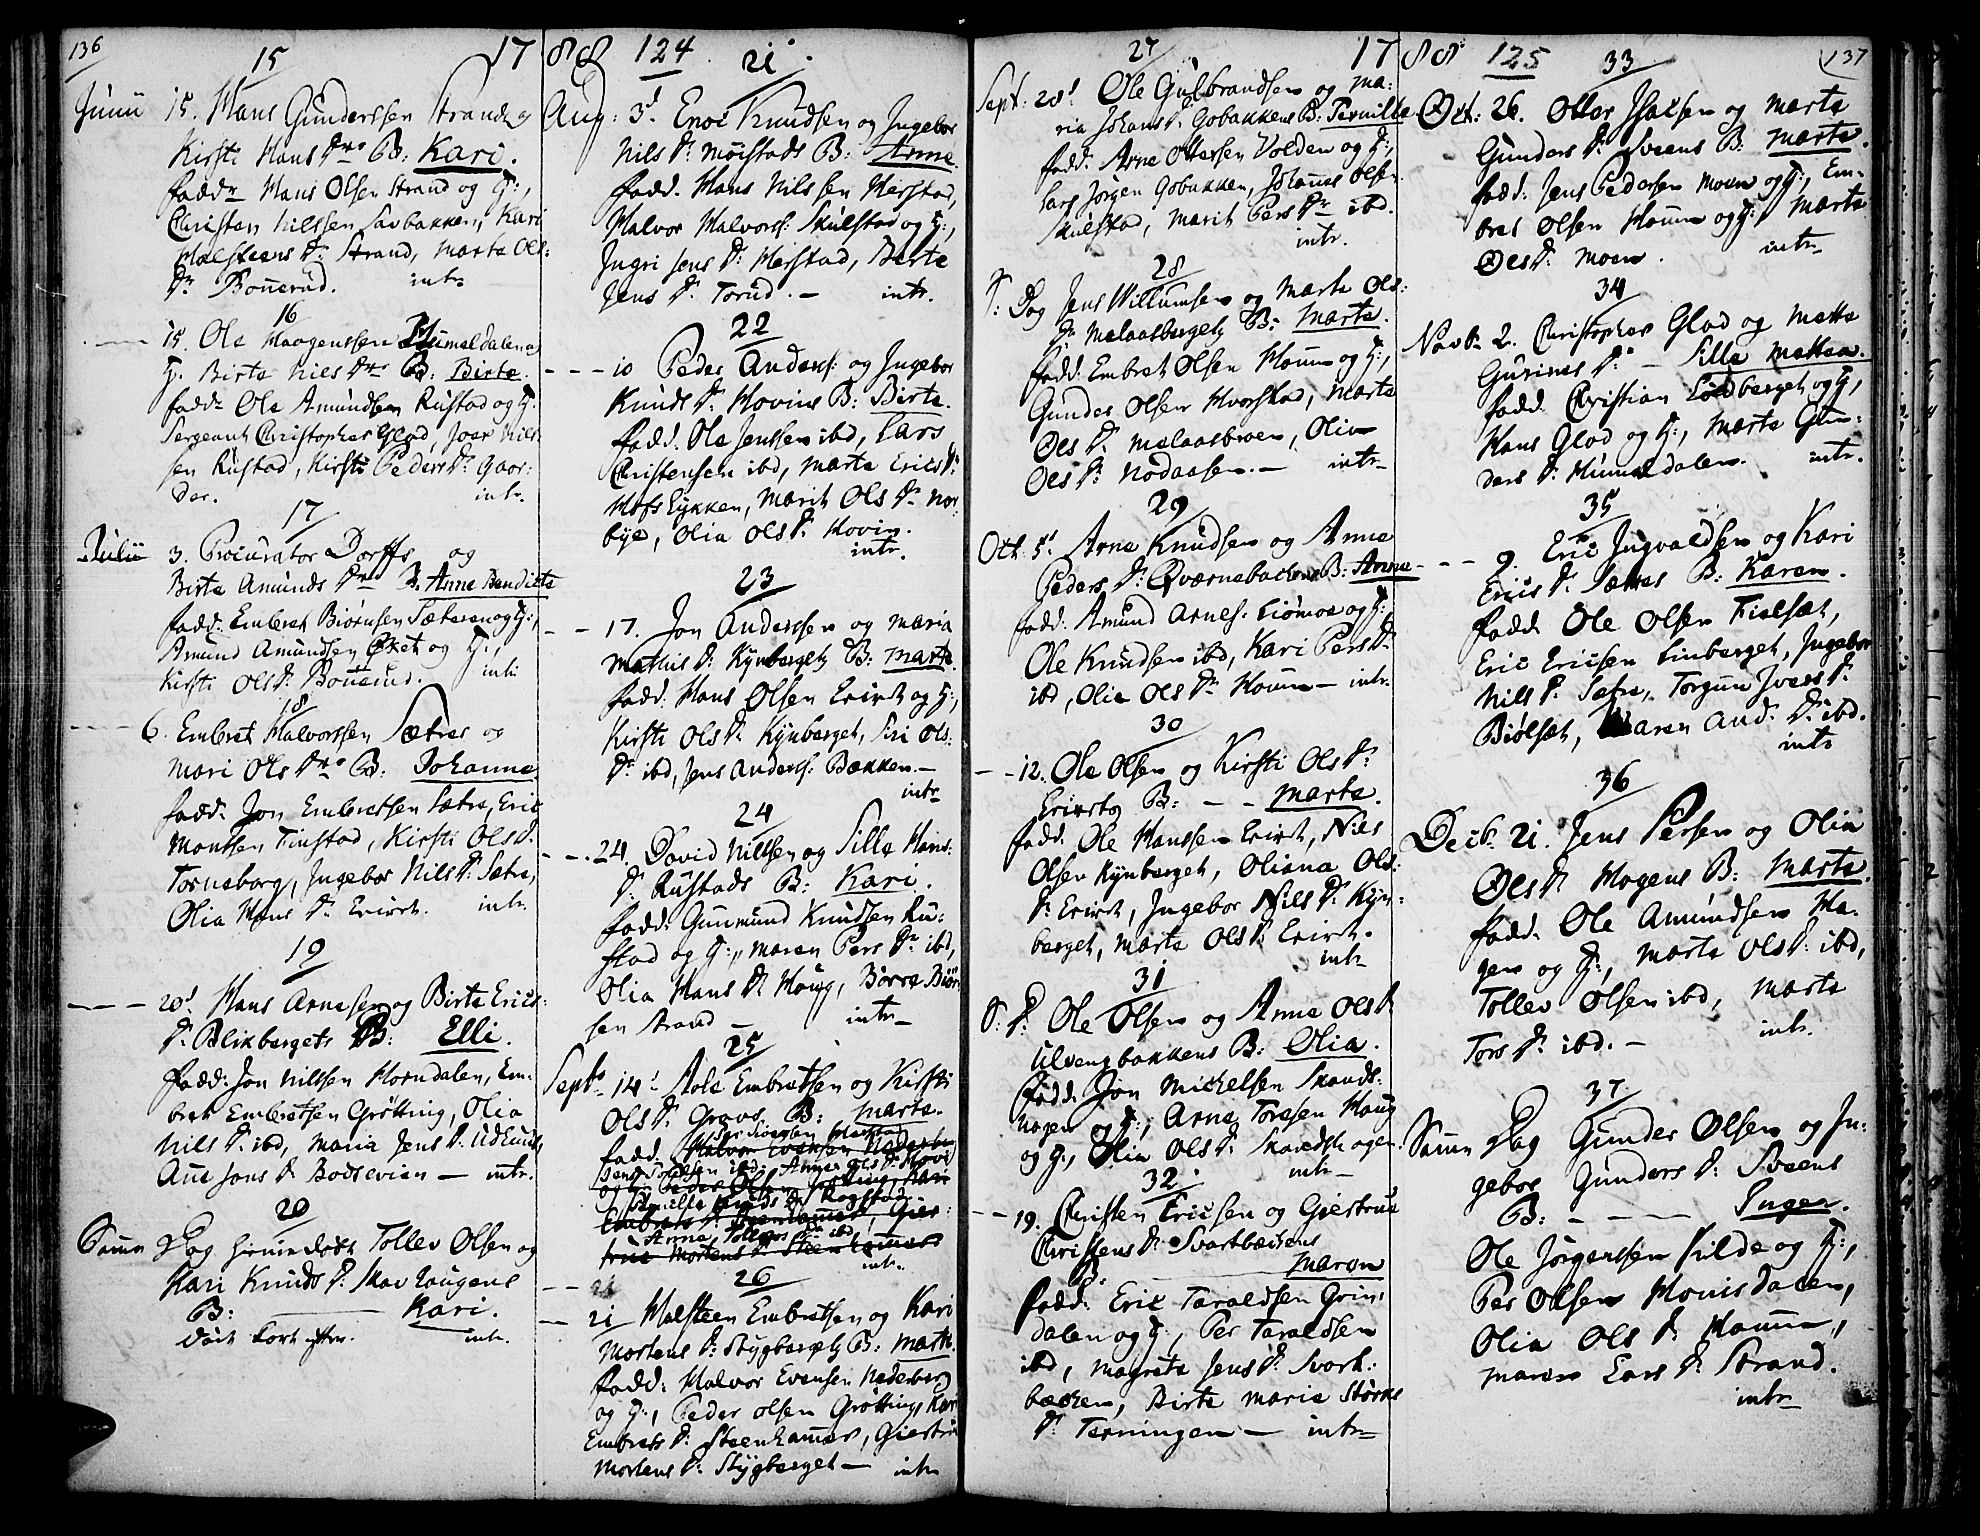 136
17 88 124
15
Junii 15. Hans Gunderssen Strand og
Kirsti Hans Dr. B: Kari.
fadd: Hans Olsen Strand og H:,
Christen Nilssen Savbakken, Kari
Halsteens D: Strand, Marte Ols:
Dr Bonnerud. intr.
16
15. Ole Haagenssen Humeldalen og
H. Birte Nils Dr. B: Birte.
fadd: Ole Amundsen Rustad og H:
Sergeant Christopher Glad, Joer Nils
sen Rustad, Kirsti Peders D: Gaar:
der. intr.
17
Julii 3. Procurator Dorffs og
Birte Amunds Dr B: Anne Bendicte
fadd: Embret Biørnsen Sæteren og H:,
Amund Amundsen Øset og H:,
Kirsti Ols D: Bonnerud. intr.
18
6. Embret Halvorssen Sætres og
Mari Ols Dr. B: Johanne.
fadd: Jon Embretsen Sætre, Eric
Montsen Finstad, Kirsti Ols D:
Torneborg, Ingebor Nils D: Sætre,
Olia Hans D: Evirst. intr.
19
20d Hans Arnesen og Birte Erics
D: Blikbergets B: Elli.
fadd: Jon Nilssen Horndalen, Em:
bret Embretsen Grøtting, Olia
Nils D: ibd, Maria Jens D: Udlund,
Ane Jons D: Bodsevien — intr.
20
Samm Dag hiemedøbt Tollev Olsen og
Kari Knuds D: Skavhaugens
B: Kari.
død kort efter. intr.
21
Aug: 3d Enoc Knudsen og Ingebor
Nils D: Moistads B: Anne.
fadd. Hans Nilssen Herstad,
Halvor Halvors: Skulstad og H:,
Ingri Jens D: Herstad, Berte
Jens D: Torud. — intr.
22
10 Peder Anders: og Ingebor
Knuds D: Hovins B: Birte.
fadd. Ole Jenssen ibd, Lars
Christensen ibd, Marte Erics D:
Hofslykken, Marit Ols D: Nor
bye, Olia Ols D: Hovin.
intr.
23
17. Jon Anderssen og Maria
Mathis D: Kynbergets B: Marte.
fadd: Hans Olsen Evirst og H:,
Kirsti Ols D: Kynberget, Siri Ols:
D: ibd, Jens Anders: Bækken. —
intr
24
24. David Nilssen og Sille Hans:
D: Rustads B: Kari.
fadd: Gunmund Knudsen Ru:
stad og H:, Maren Pers D: ibd,
Olia Hans D: Houg, Børre Biør
sen Strand — intr—
25
Septr 14d Aole Embretsen og Kirsti
Ols D: Gravs B: Marte.
fadd:
intr.
26
21 Halsteen Embretsen og Kari
Mortens D: Stygbergets B: Marte.
fadd: Halvor Evensen Nederberg
og H:, Peder Olsen Grøtting, Kari
Embrets D: Steenhamer, Giertru
Mortens D: Stygberget — intr
17 88 125
137
27
Sept: 20d Ole Gulbrandsen og Ma:
ria Johans D: Gobakkens B: Pernille
fadd: Arne Ottersen Volden og H:,
Lars Jørgen Gobakken, Johannes Olsen
Skulstad, Marit Pers Dr ibd.
intr.
28
S: Dag Jens Willumsen og Marte Ols:
D: Melaasbergets B: Marte.
fadd: Embret Olsen Houm og H:,
Gunder Olsen Hvorstad, Marte
Oles D: Melaasbroen, Olia
Oles D: Nodaasen. — intr—
29
Oct: 5d Arne Knudsen og Anne
Peders D: Qværnebackens B: Anne
fadd: Amund Arnes: Liømoe og H:,
Ole Knudsen ibd, Kari Pers D:
ibd, Olia Ols Dr Houm — intr.
30
12. Ole Olsen og Kirsti Ols D:
Evirsts B: — Marte.
fadd: Ole Hanssen Evirst, Nils
Olsen Kynberget, Oliana Ols:
D: Evirst, Ingebor Nils D: Kyn:
berget, Marte Ols D: Evirst.
intr
31
S: D: Ole Olsen og Anne Ols D:
Ulvengbakkens B: Olia.
fadd: Jon Michelsen Skands:
hagen og H:, Arne Toresen Houg
og H:, Olia Ols D: Skandshagen.
intr—
32
19. Christen Ericsen og Giertrue
Christens D: Svartbækens
B. Maren
fadd: Eric Taraldsen Grin:
dalen og H:, Per Taraldsen
ibd, Magrete Jens D: Svart:
bæcken, Birte Maria Størks
D: Terningen — intr—
33
Oct: 26. Otter Isacsen og Marte
Gunders D: Sveens B: Marte.
fad: Jens Pedersen Moen og H:, Em:
bret Olsen Houm og H:, Marte
Oles D: Moen. intr—
34
Novbr 2. Christopher Glad og Mette
Gurines D: — Sille Mettea.
fadd. Christian Lindberget og H,
Hans Glad og H:, Marte Gun:
ders D: Humeldalen. intr.
35
9. Eric Ingvaldsen og Kari
Erics D: Sætres B: Karen.
fadd. Ole Olsen Fielsæt,
Eric Ericsen Linberget, Ingebor
Nils D: Sætre, Torgun Ivers D:
Biølsæt, Maren And: D: ibd.
intr
36
Decbr. 21. Jens Persen og Olia
Oles D: Hogens B: Marte.
fadd. Ole Amundsen Ha:
gen og H:, Marte Ols D: ibd,
Tollev Olsen ibd, Marte
Tors D: ibd. — intr.
37
Samm Dag Gunder Olsen og In:
gebor Gunders D: Sveens
B: — — Inger.
Ole Jørgenssen Kilde og H:,
Per Olsen Hornisdalen,
Olia Ols D: Houm,
Maren Lars D: Strand.
intr—